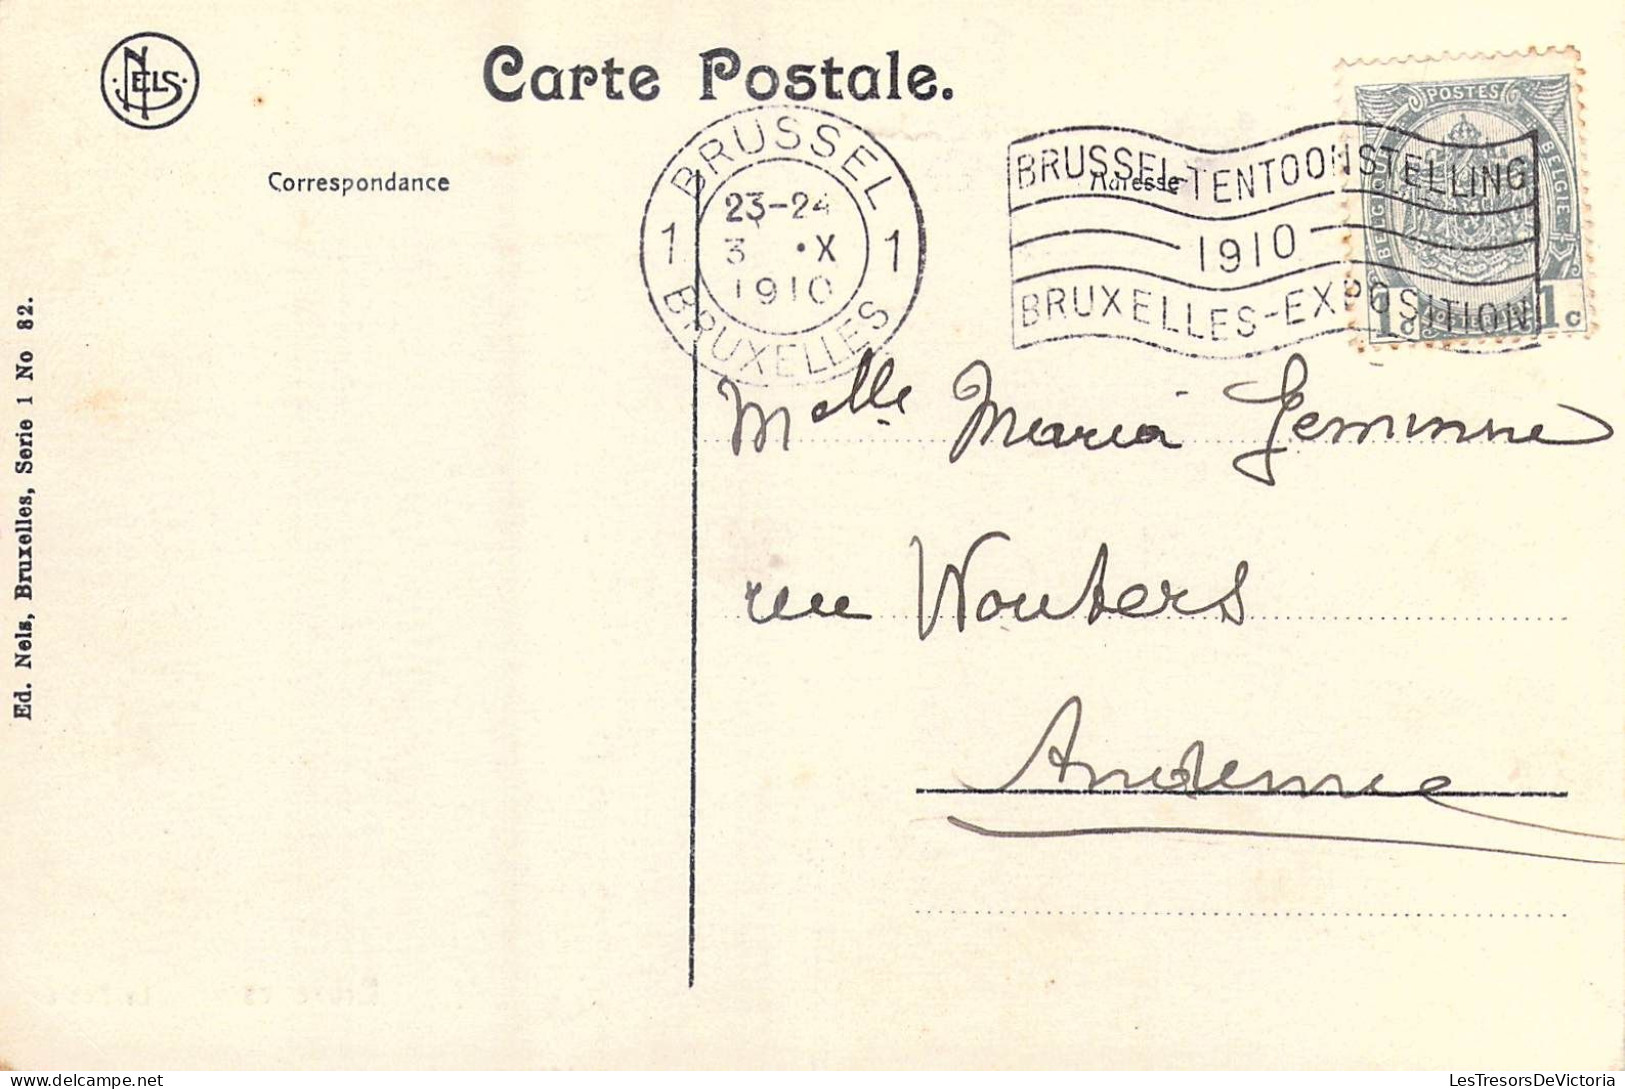 NELS
Carte Postale.
Correspondance
Adresse
BRUSSEL
23-24
3 • X
1910
1 1
BRUXELLES
BRUSSEL-TENTOONSTELLING
1910
BRUXELLES-EXPOSITION
POSTES
BELGIQUE
BELGIË
1c 1c
Melle Maria Geminne
rue Wouters
Andenne
Ed. Nels, Bruxelles, Serie 1 No 82.
LesTresorsDeVictoria